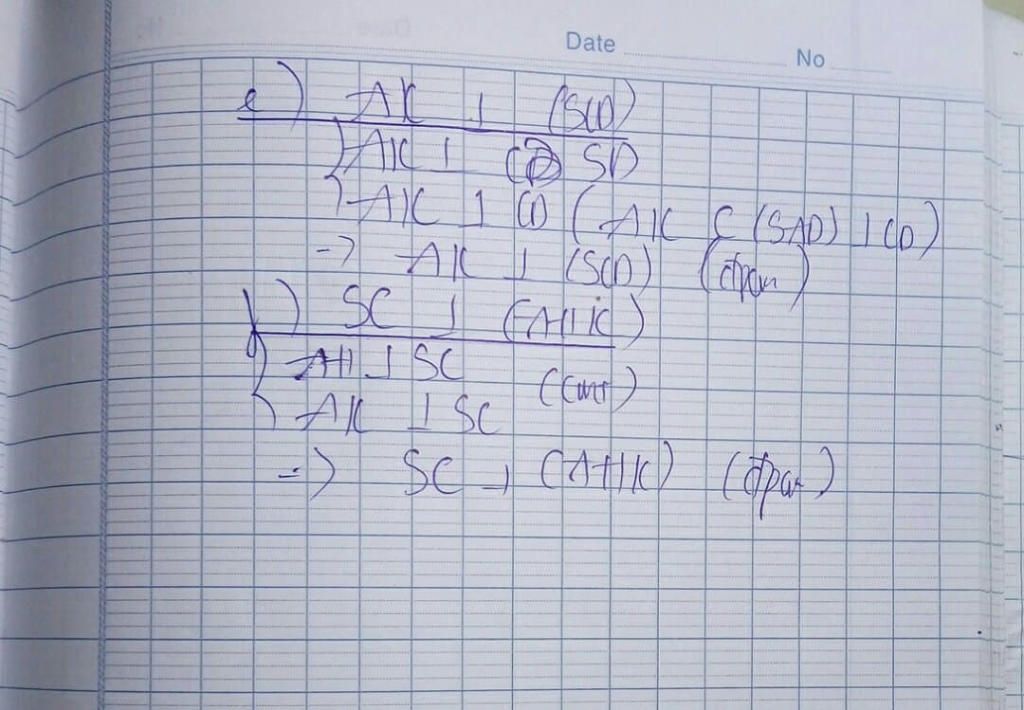 Date No
e) AK ⊥ (SCD)
AK ⊥ SD
AK ⊥ CD (AK ⊂ (SAD) ⊥ CD)
=> AK ⊥ (SCD) (đpcm)
f) SC ⊥ (AHK)
AH ⊥ SC (cmt)
AK ⊥ SC
=> SC ⊥ (AHK) (đpcm)